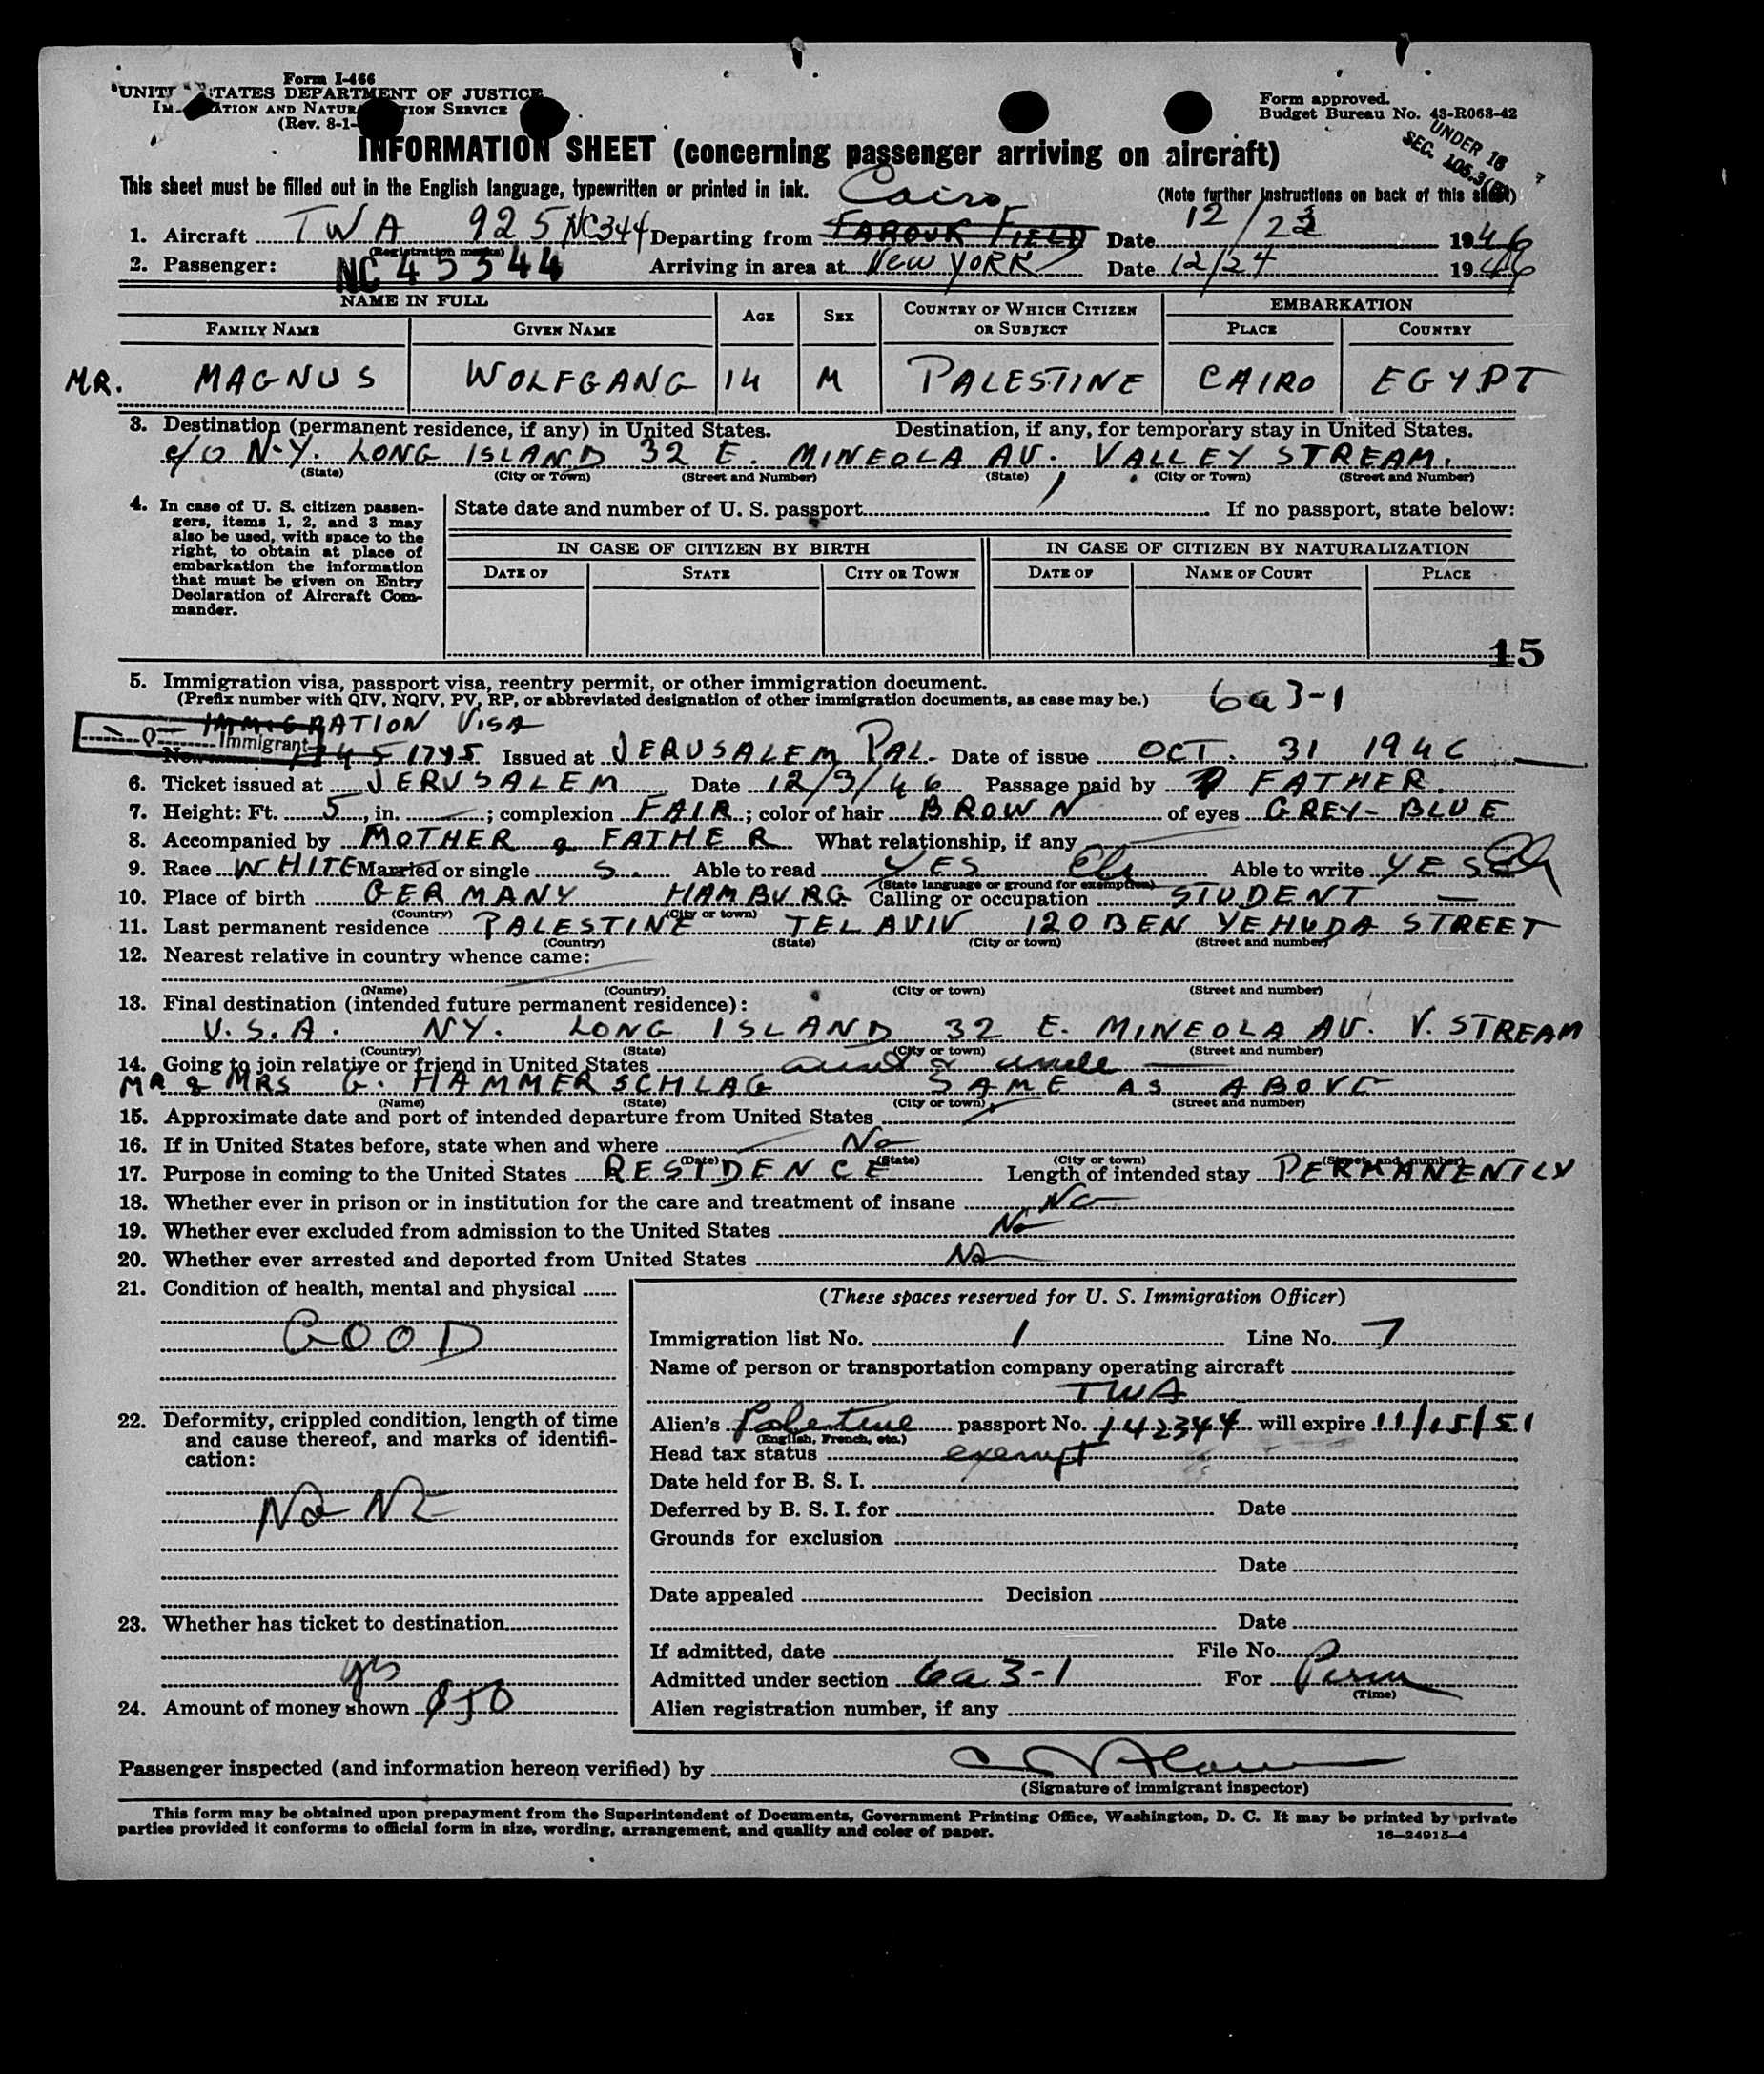 Form I-466
UNITED STATES DEPARTMENT OF JUSTICE
IMMIGRATION AND NATURALIZATION SERVICE
(Rev. 8-1-
Form approved.
Budget Bureau No. 43-R063-42
UNDER 16
SEC. 106.3
INFORMATION SHEET (concerning passenger arriving on aircraft)
This sheet must be filled out in the English language, typewritten or printed in ink.
(Note further instructions on back of this sheet)
Cairo
1. Aircraft TWA 925 NC344 Departing from FAROUK FIELD Date 12/23 1946
(Registration marks)
2. Passenger: NC 45344 Arriving in area at NEW YORK Date 12/24 1946
NAME IN FULL AGE SEX COUNTRY OF WHICH CITIZEN OR SUBJECT EMBARKATION
FAMILY NAME GIVEN NAME PLACE COUNTRY
MR. MAGNUS WOLFGANG 14 M PALESTINE CAIRO EGYPT
3. Destination (permanent residence, if any) in United States. Destination, if any, for temporary stay in United States.
c/o N-Y. LONG ISLAND 32 E. MINEOLA AV. VALLEY STREAM.
(State) (City or Town) (Street and Number) (State) (City or Town) (Street and Number)
4. In case of U. S. citizen passengers, items 1, 2, and 3 may also be used, with space to the right, to obtain at place of embarkation the information that must be given on Entry Declaration of Aircraft Commander.
State date and number of U. S. passport If no passport, state below:
IN CASE OF CITIZEN BY BIRTH IN CASE OF CITIZEN BY NATURALIZATION
DATE OF STATE CITY OR TOWN DATE OF NAME OF COURT PLACE
15
5. Immigration visa, passport visa, reentry permit, or other immigration document.
(Prefix number with QIV, NQIV, PV, RP, or abbreviated designation of other immigration documents, as case may be.) 6a3-1
IMMIGRATION VISA
Q Immigrant
No. 1745 Issued at JERUSALEM PAL. Date of issue OCT. 31 1946
6. Ticket issued at JERUSALEM Date 12/3/46 Passage paid by FATHER
7. Height: Ft. 5, in. ; complexion FAIR; color of hair BROWN of eyes GREY-BLUE
8. Accompanied by MOTHER & FATHER What relationship, if any
9. Race WHITE Married or single S. Able to read YES Able to write YES
(State language or ground for exemption)
10. Place of birth GERMANY HAMBURG Calling or occupation STUDENT —
(Country) (City or town)
11. Last permanent residence PALESTINE TEL AVIV 120 BEN YEHUDA STREET
(Country) (State) (City or town) (Street and number)
12. Nearest relative in country whence came:
(Name) (Country) (City or town) (Street and number)
13. Final destination (intended future permanent residence):
U.S.A. NY. LONG ISLAND 32 E. MINEOLA AU. V. STREAM
(Country) (State) (City or town) (Street and number)
14. Going to join relative or friend in United States aunt & uncle
MR & MRS G. HAMMERSCHLAG SAME AS ABOVE
(Name) (State) (City or town) (Street and number)
15. Approximate date and port of intended departure from United States
16. If in United States before, state when and where No
(Date) (State) (City or town) (Street and number)
17. Purpose in coming to the United States RESIDENCE Length of intended stay PERMANENTLY
18. Whether ever in prison or in institution for the care and treatment of insane No
19. Whether ever excluded from admission to the United States No
20. Whether ever arrested and deported from United States No
21. Condition of health, mental and physical
GOOD
22. Deformity, crippled condition, length of time and cause thereof, and marks of identification:
NoNE
23. Whether has ticket to destination
yes
24. Amount of money shown $50
(These spaces reserved for U. S. Immigration Officer)
Immigration list No. 1 Line No. 7
Name of person or transportation company operating aircraft
TWA
Alien's Palestine passport No. 142344 will expire 11/15/51
(English, French, etc.)
Head tax status exempt
Date held for B. S. I.
Deferred by B. S. I. for Date
Grounds for exclusion
Date
Date appealed Decision
Date
If admitted, date File No.
Admitted under section 6a3-1 For Perm
(Time)
Alien registration number, if any
Passenger inspected (and information hereon verified) by
(Signature of immigrant inspector)
This form may be obtained upon prepayment from the Superintendent of Documents, Government Printing Office, Washington, D. C. It may be printed by private
parties provided it conforms to official form in size, wording, arrangement, and quality and color of paper.
16—24915-4